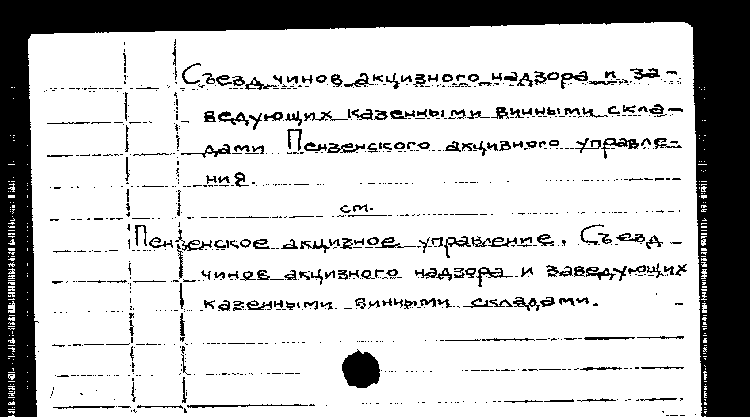 Съезд чинов акцизного надзора и за-
ведующих казенными винными скла-
дами Пензенского акцизного управле-
ния.
см.
Пензенское акцизное управление. Съезд
чинов акцизного надзора и заведующих
казенными винными складами.